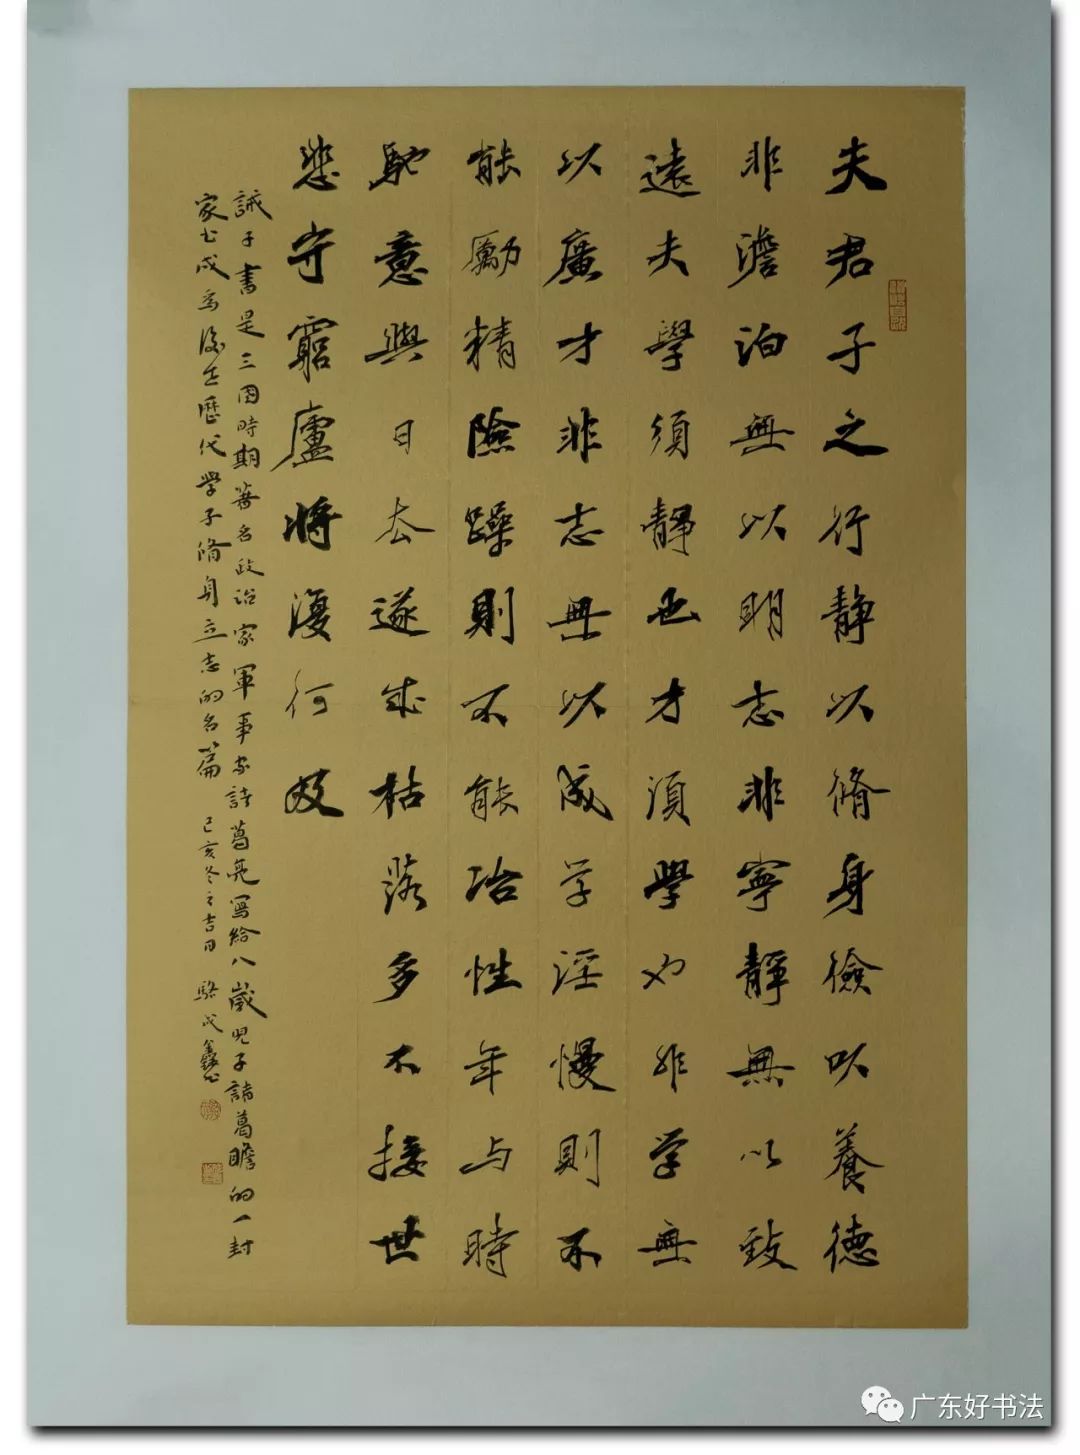 夫君子之行靜以脩身儉以養德
非澹泊無以明志非寧靜無以致
遠夫學須靜也才須學也非学無
以廣才非志無以成学淫慢則不
能勵精險躁則不能冶性年与時
馳意與日去遂成枯落多不接世
悲守窮廬將復何及
誡子書是三国時期著名政治家軍事家諸葛亮寫給八歲児子諸葛瞻的一封
家书成為後世歷代學子脩身立志的名篇 己亥冬之吉日 駱成鑫书
广东好书法